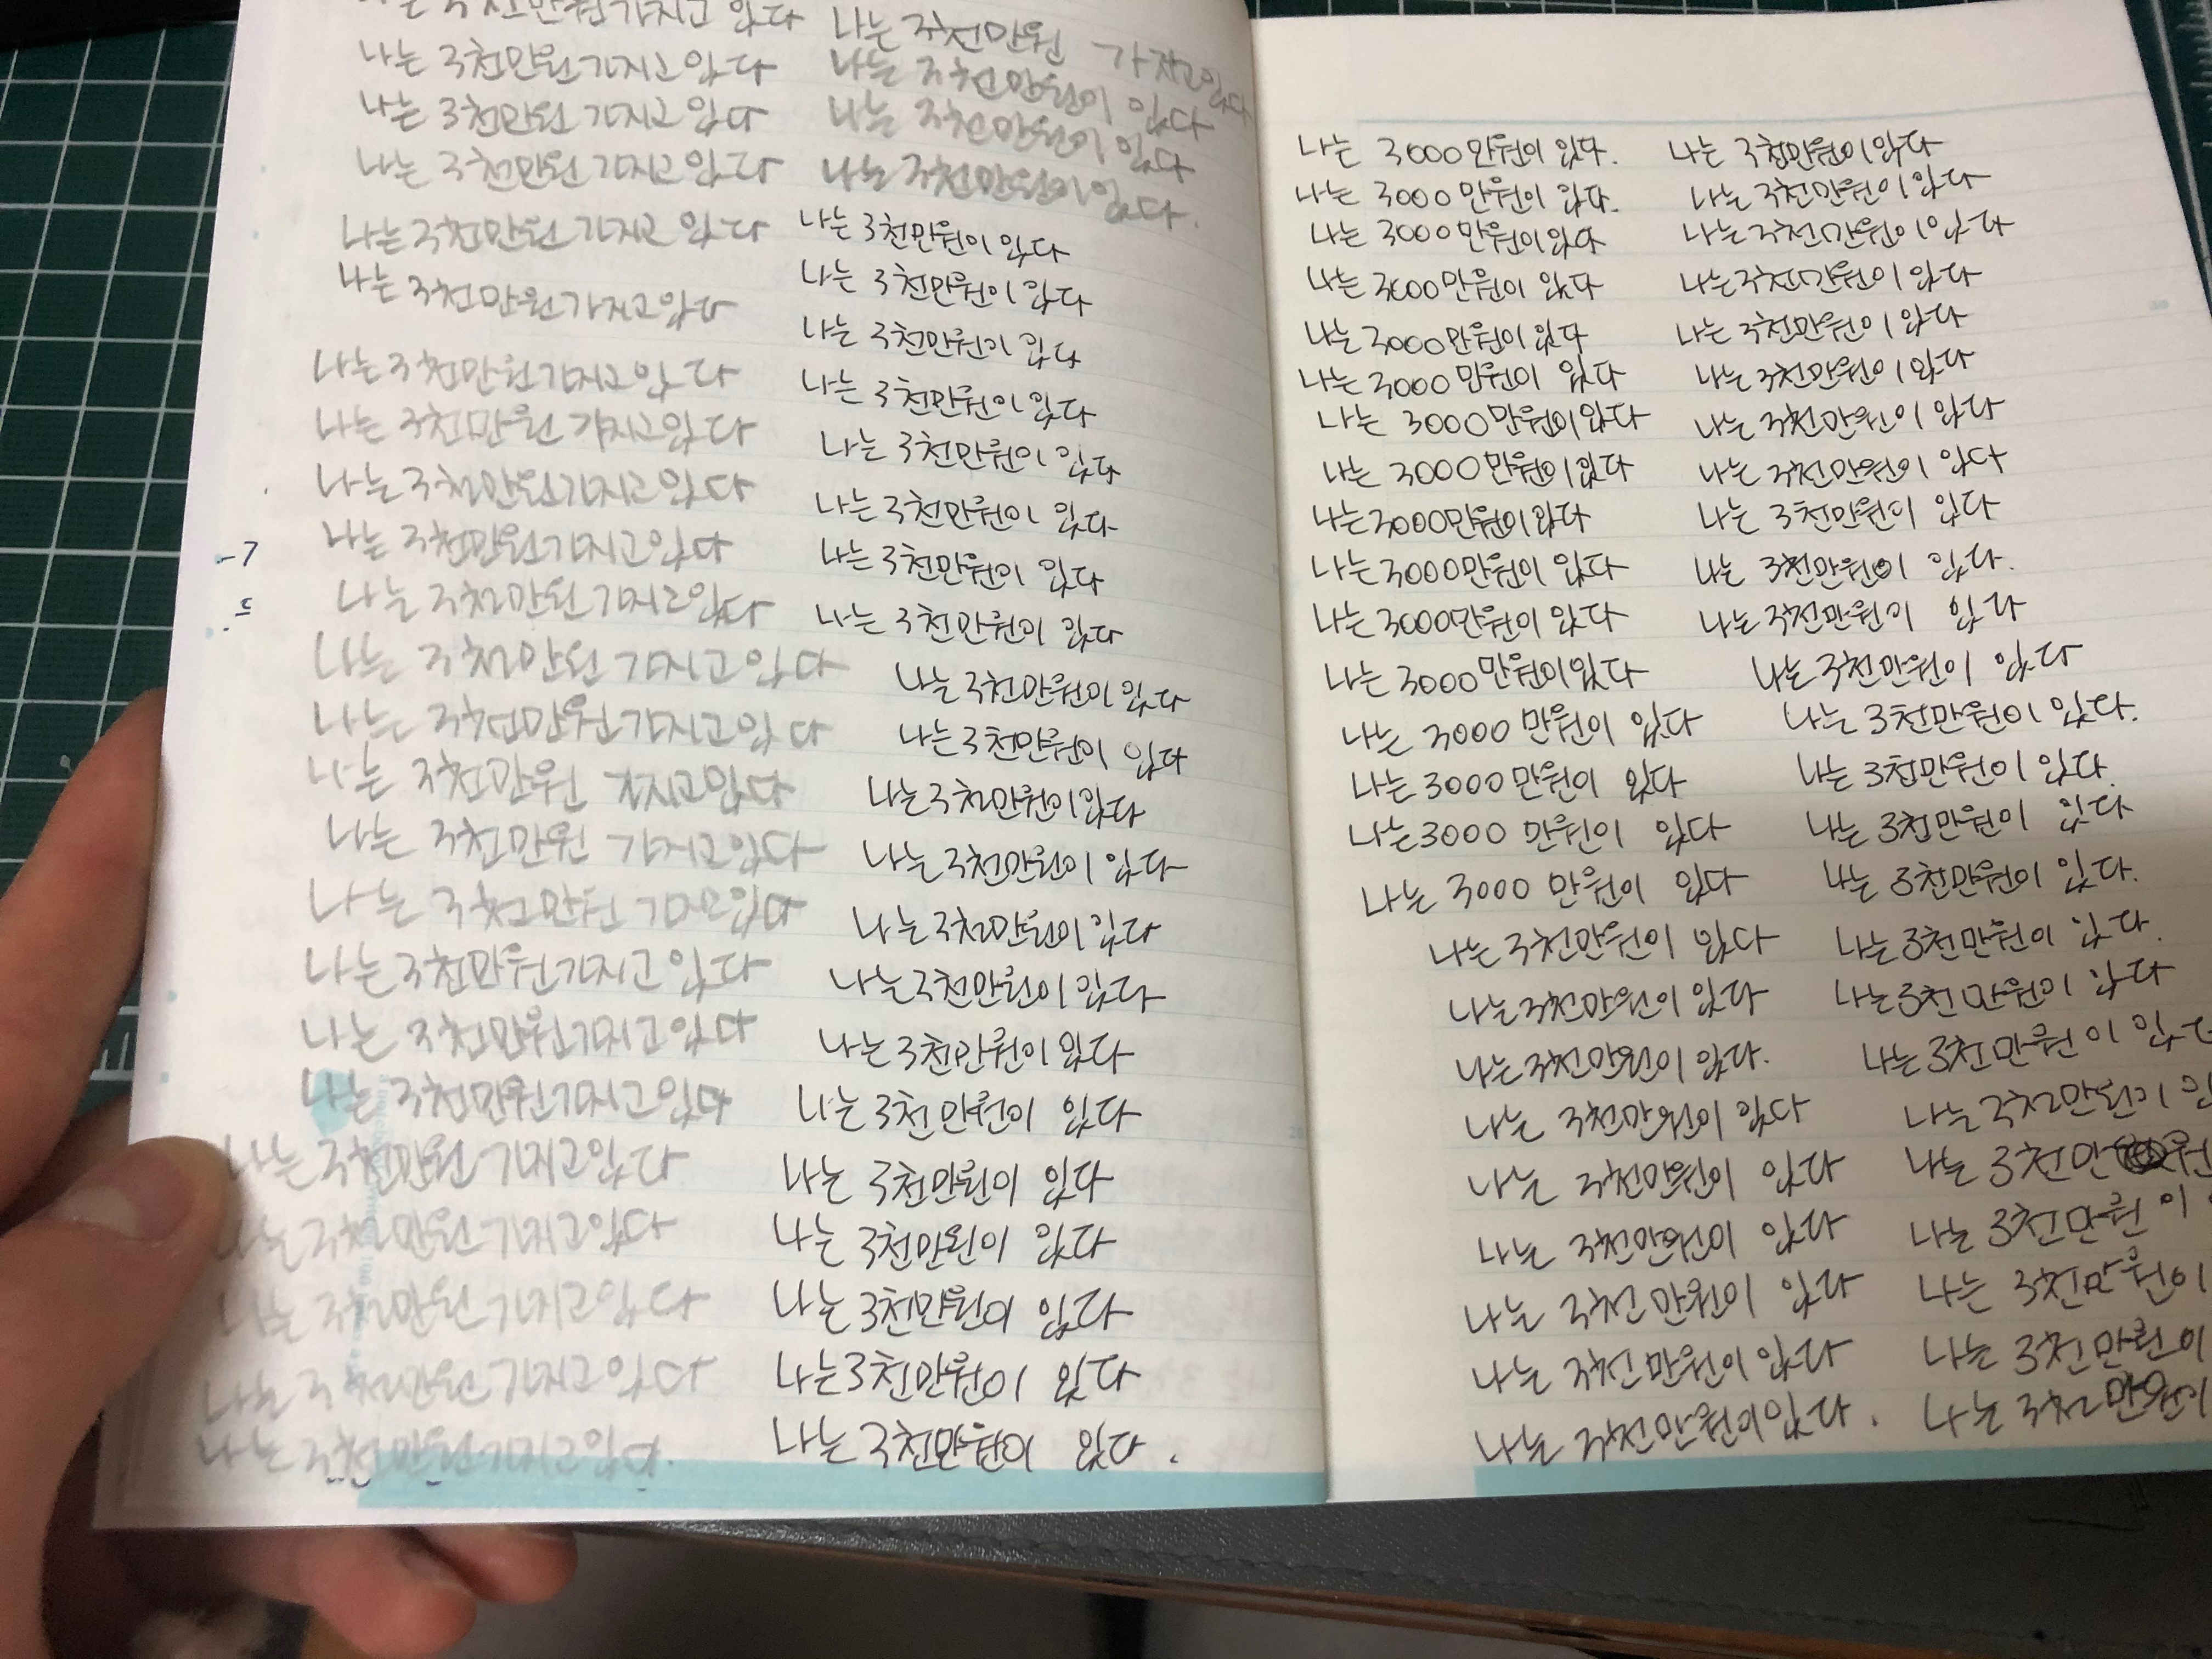 나는 3천만원 가지고 있다
나는 3천만원 가지고 있다
나는 3천만원 가지고 있다
나는 3천만원 가지고 있다
나는 3천만원 가지고 있다
나는 3천만원 가지고 있다
나는 3천만원 가지고 있다
나는 3천만원 가지고 있다
나는 3천만원 가지고 있다
나는 3천만원 가지고 있다
나는 3천만원 가지고 있다
나는 3천만원 가지고 있다
나는 3천만원 가지고 있다
나는 3천만원 가지고 있다
나는 3천만원 가지고 있다
나는 3천만원 가지고 있다
나는 3천만원 가지고 있다
나는 3천만원 가지고 있다
나는 3천만원 가지고 있다
나는 3천만원 가지고 있다
나는 3천만원 가지고 있다
나는 3천만원 가지고 있다
나는 3천만원 가지고 있다
나는 3천만원 가지고 있다.
나는 3천만원 가지고있다
나는 3천만원이 있다
나는 3천만원이 있다
나는 3천만원이 있다.
나는 3천만원이 있다
나는 3천만원이 있다
나는 3천만원이 있다
나는 3천만원이 있다
나는 3천만원이 있다
나는 3천만원이 있다
나는 3천만원이 있다
나는 3천만원이 있다
나는 3천만원이 있다
나는 3천만원이 있다
나는 3천만원이 있다
나는 3천만원이 있다
나는 3천만원이 있다
나는 3천만원이 있다
나는 3천만원이 있다
나는 3천만원이 있다
나는 3천만원이 있다
나는 3천만원이 있다
나는 3천만원이 있다
나는 3천만원이 있다
나는 3천만원이 있다.
나는 3000만원이 있다.
나는 3000만원이 있다.
나는 3000만원이 있다
나는 3000만원이 있다
나는 3000만원이 있다
나는 3000만원이 있다
나는 3000만원이 있다
나는 3000만원이 있다
나는 3000만원이 있다
나는 3000만원이 있다
나는 3000만원이 있다
나는 3000만원이 있다
나는 3000만원이 있다
나는 3000만원이 있다
나는 3000만원이 있다
나는 3000만원이 있다
나는 3천만원이 있다
나는 3천만원이 있다
나는 3천만원이 있다.
나는 3천만원이 있다
나는 3천만원이 있다
나는 3천만원이 있다
나는 3천만원이 있다
나는 3천만원이 있다
나는 3천만원이 있다.
나는 3천만원이 있다
나는 3천만원이 있다
나는 3천만원이 있다
나는 3천만원이 있다
나는 3천만원이 있다
나는 3천만원이 있다
나는 3천만원이 있다
나는 3천만원이 있다
나는 3천만원이 있다
나는 3천만원이 있다.
나는 3천만원이 있다
나는 3천만원이 있다
나는 3천만원이 있다.
나는 3천만원이 있다.
나는 3천만원이 있다
나는 3천만원이 있다.
나는 3천만원이 있다.
나는 3천만원이 있다
나는 3천만원이 있다
나는 3천만원이
나는 3천만원
나는 3천만원이
나는 3천만원이
나는 3천만원이
나는 3천만원이